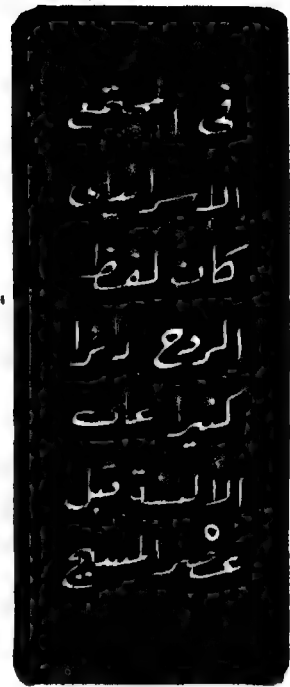 فى المجتمع
الاسرائيلى
كان لفظ
الروح دائرا
كثيرا على
الالسنة قبل
عصر المسيح